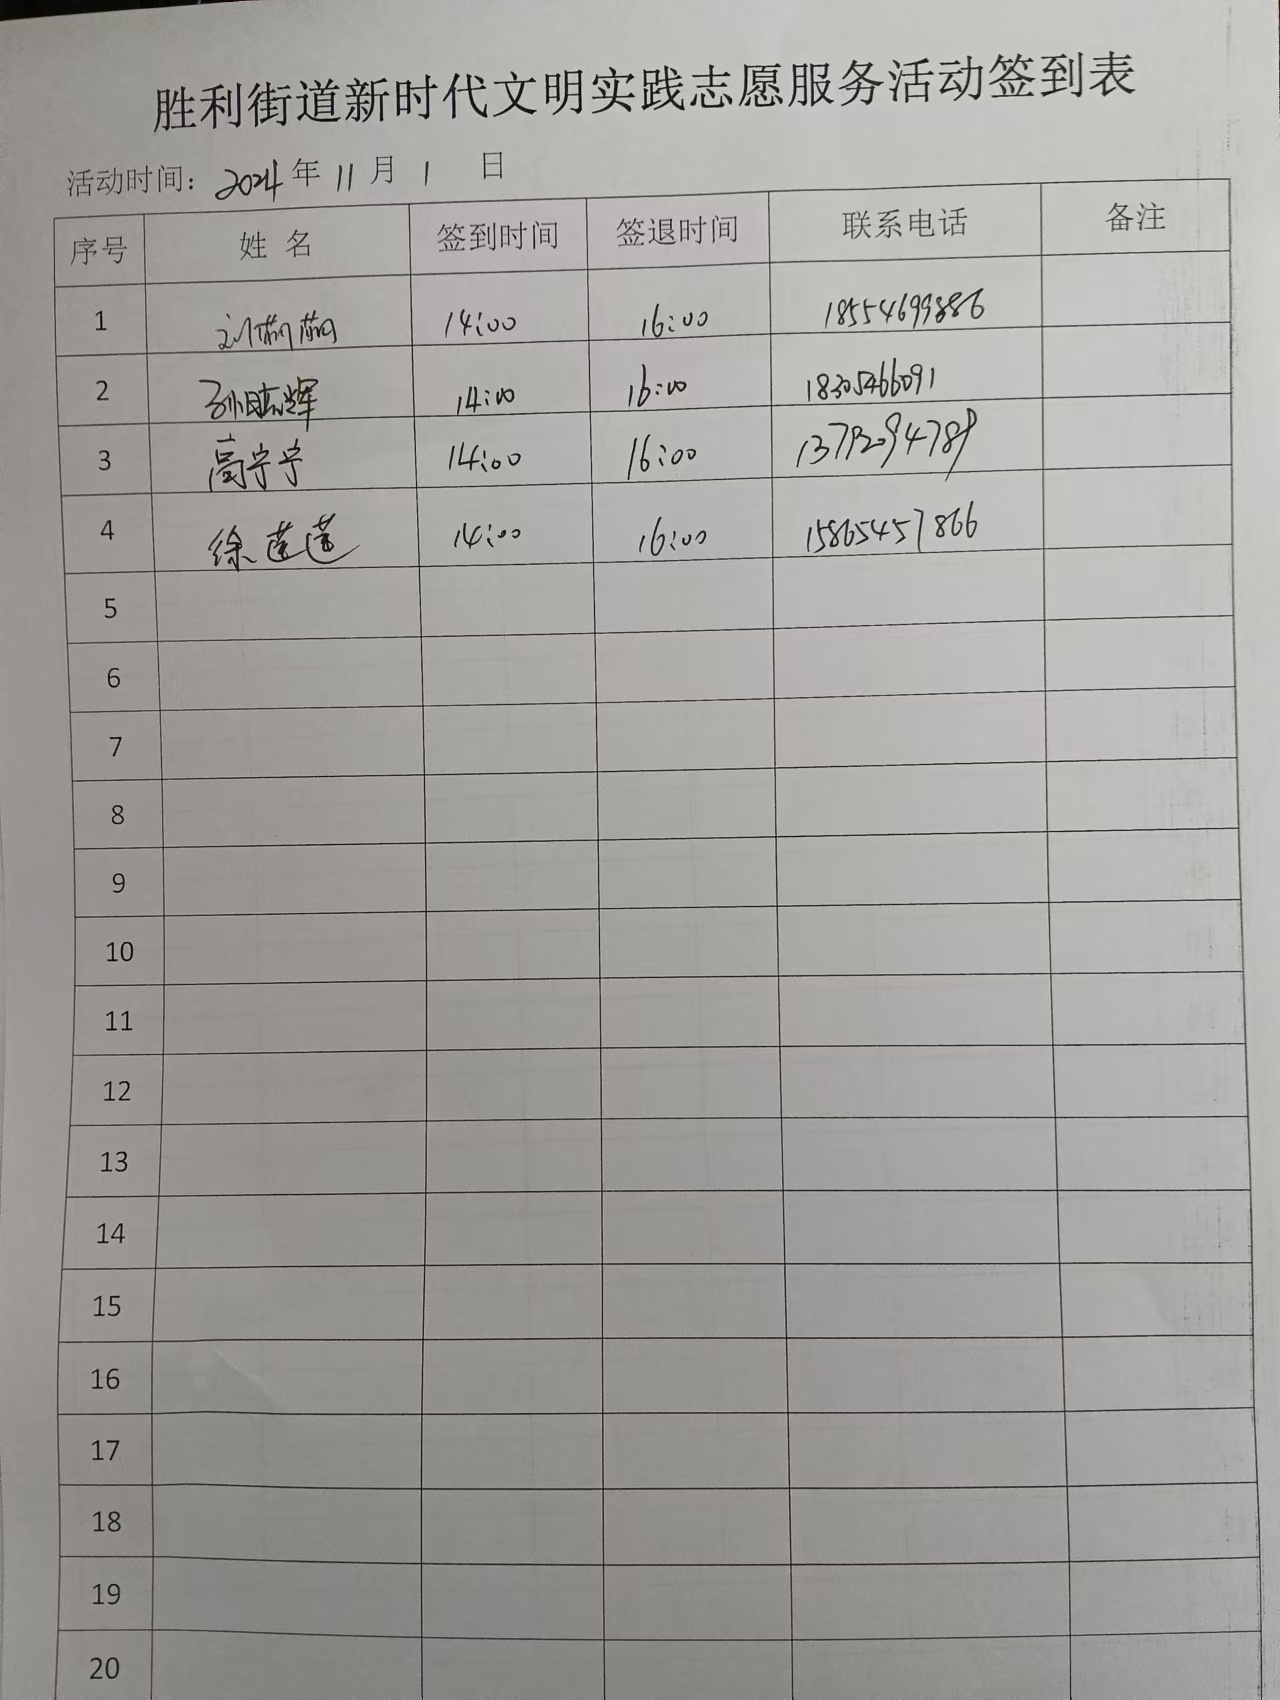 胜利街道新时代文明实践志愿服务活动签到表
活动时间：2024年11月1日
序号 姓名 签到时间 签退时间 联系电话 备注
1 刘 14:00 16:00 18554699886
2 孙 辉 14:00 16:00 18305466091
3 高宁宁 14:00 16:00 13792094789
4 徐莲莲 14:00 16:00 15865457866
5
6
7
8
9
10
11
12
13
14
15
16
17
18
19
20